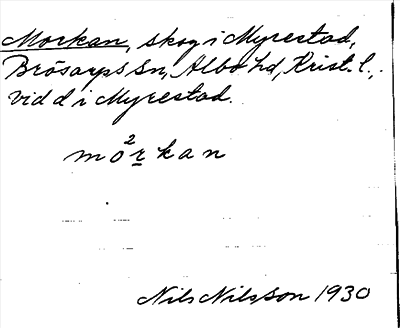 Morkan, skog i Myrestad,
Brösarps sn, Albo hd, Krist. l.,
vid d i Myrestad.
mo²rkan
Nils Nilsson 1930